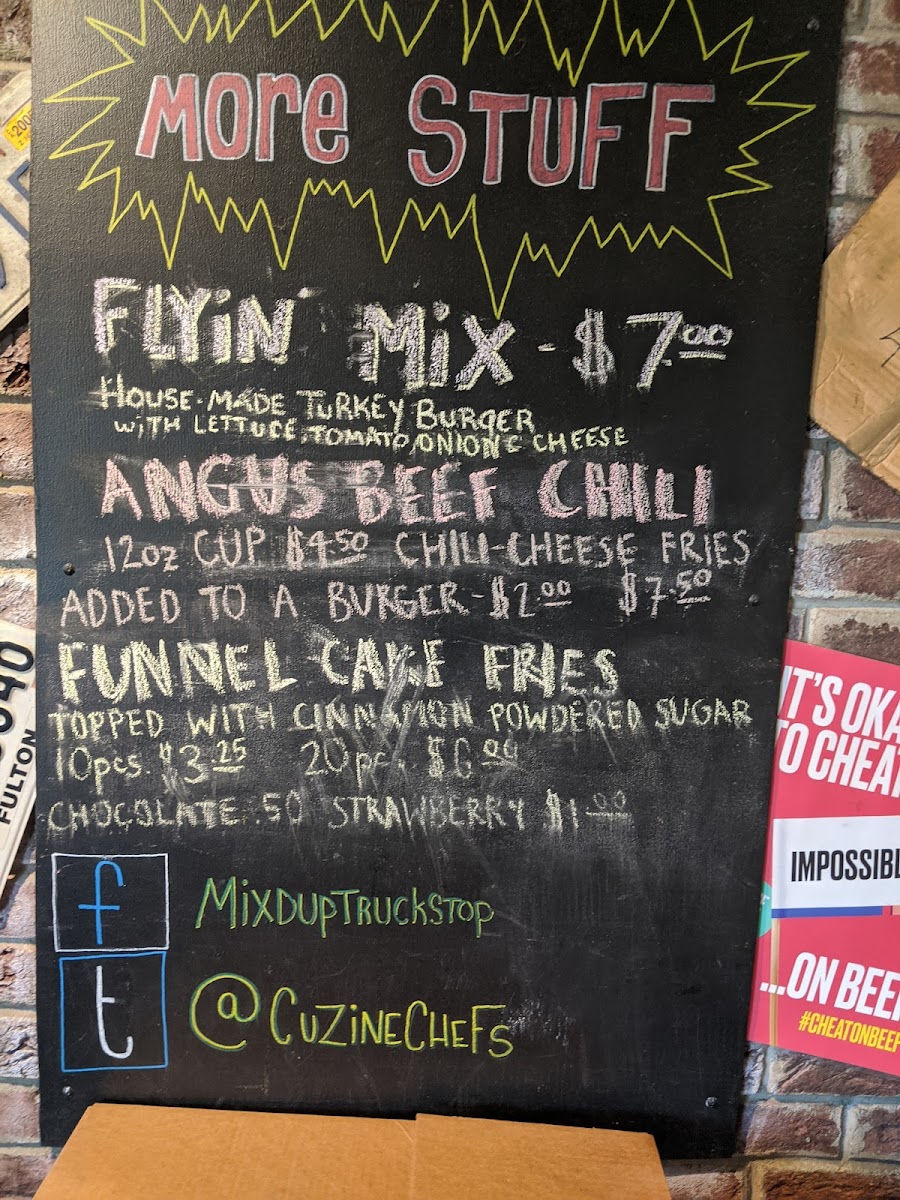 MORE STUFF
FLYIN' MIX - $7.00
HOUSE-MADE TURKEY BURGER
WITH LETTUCE, TOMATO, ONION & CHEESE
ANGUS BEEF CHILI
12oz CUP $4.50 CHILI-CHEESE FRIES
ADDED TO A BURGER - $2.00 $7.50
FUNNEL CAKE FRIES
TOPPED WITH CINNAMON POWDERED SUGAR
10pcs. $3.25 20pc. $6.00
CHOCOLATE .50 STRAWBERRY $1.00
f MIXDUPTRUCKSTOP
t @CUZINECHEFS
FULTON
IT'S OKA
TO CHEAT
IMPOSSIBL
...ON BEEF
#CHEATONBEEF